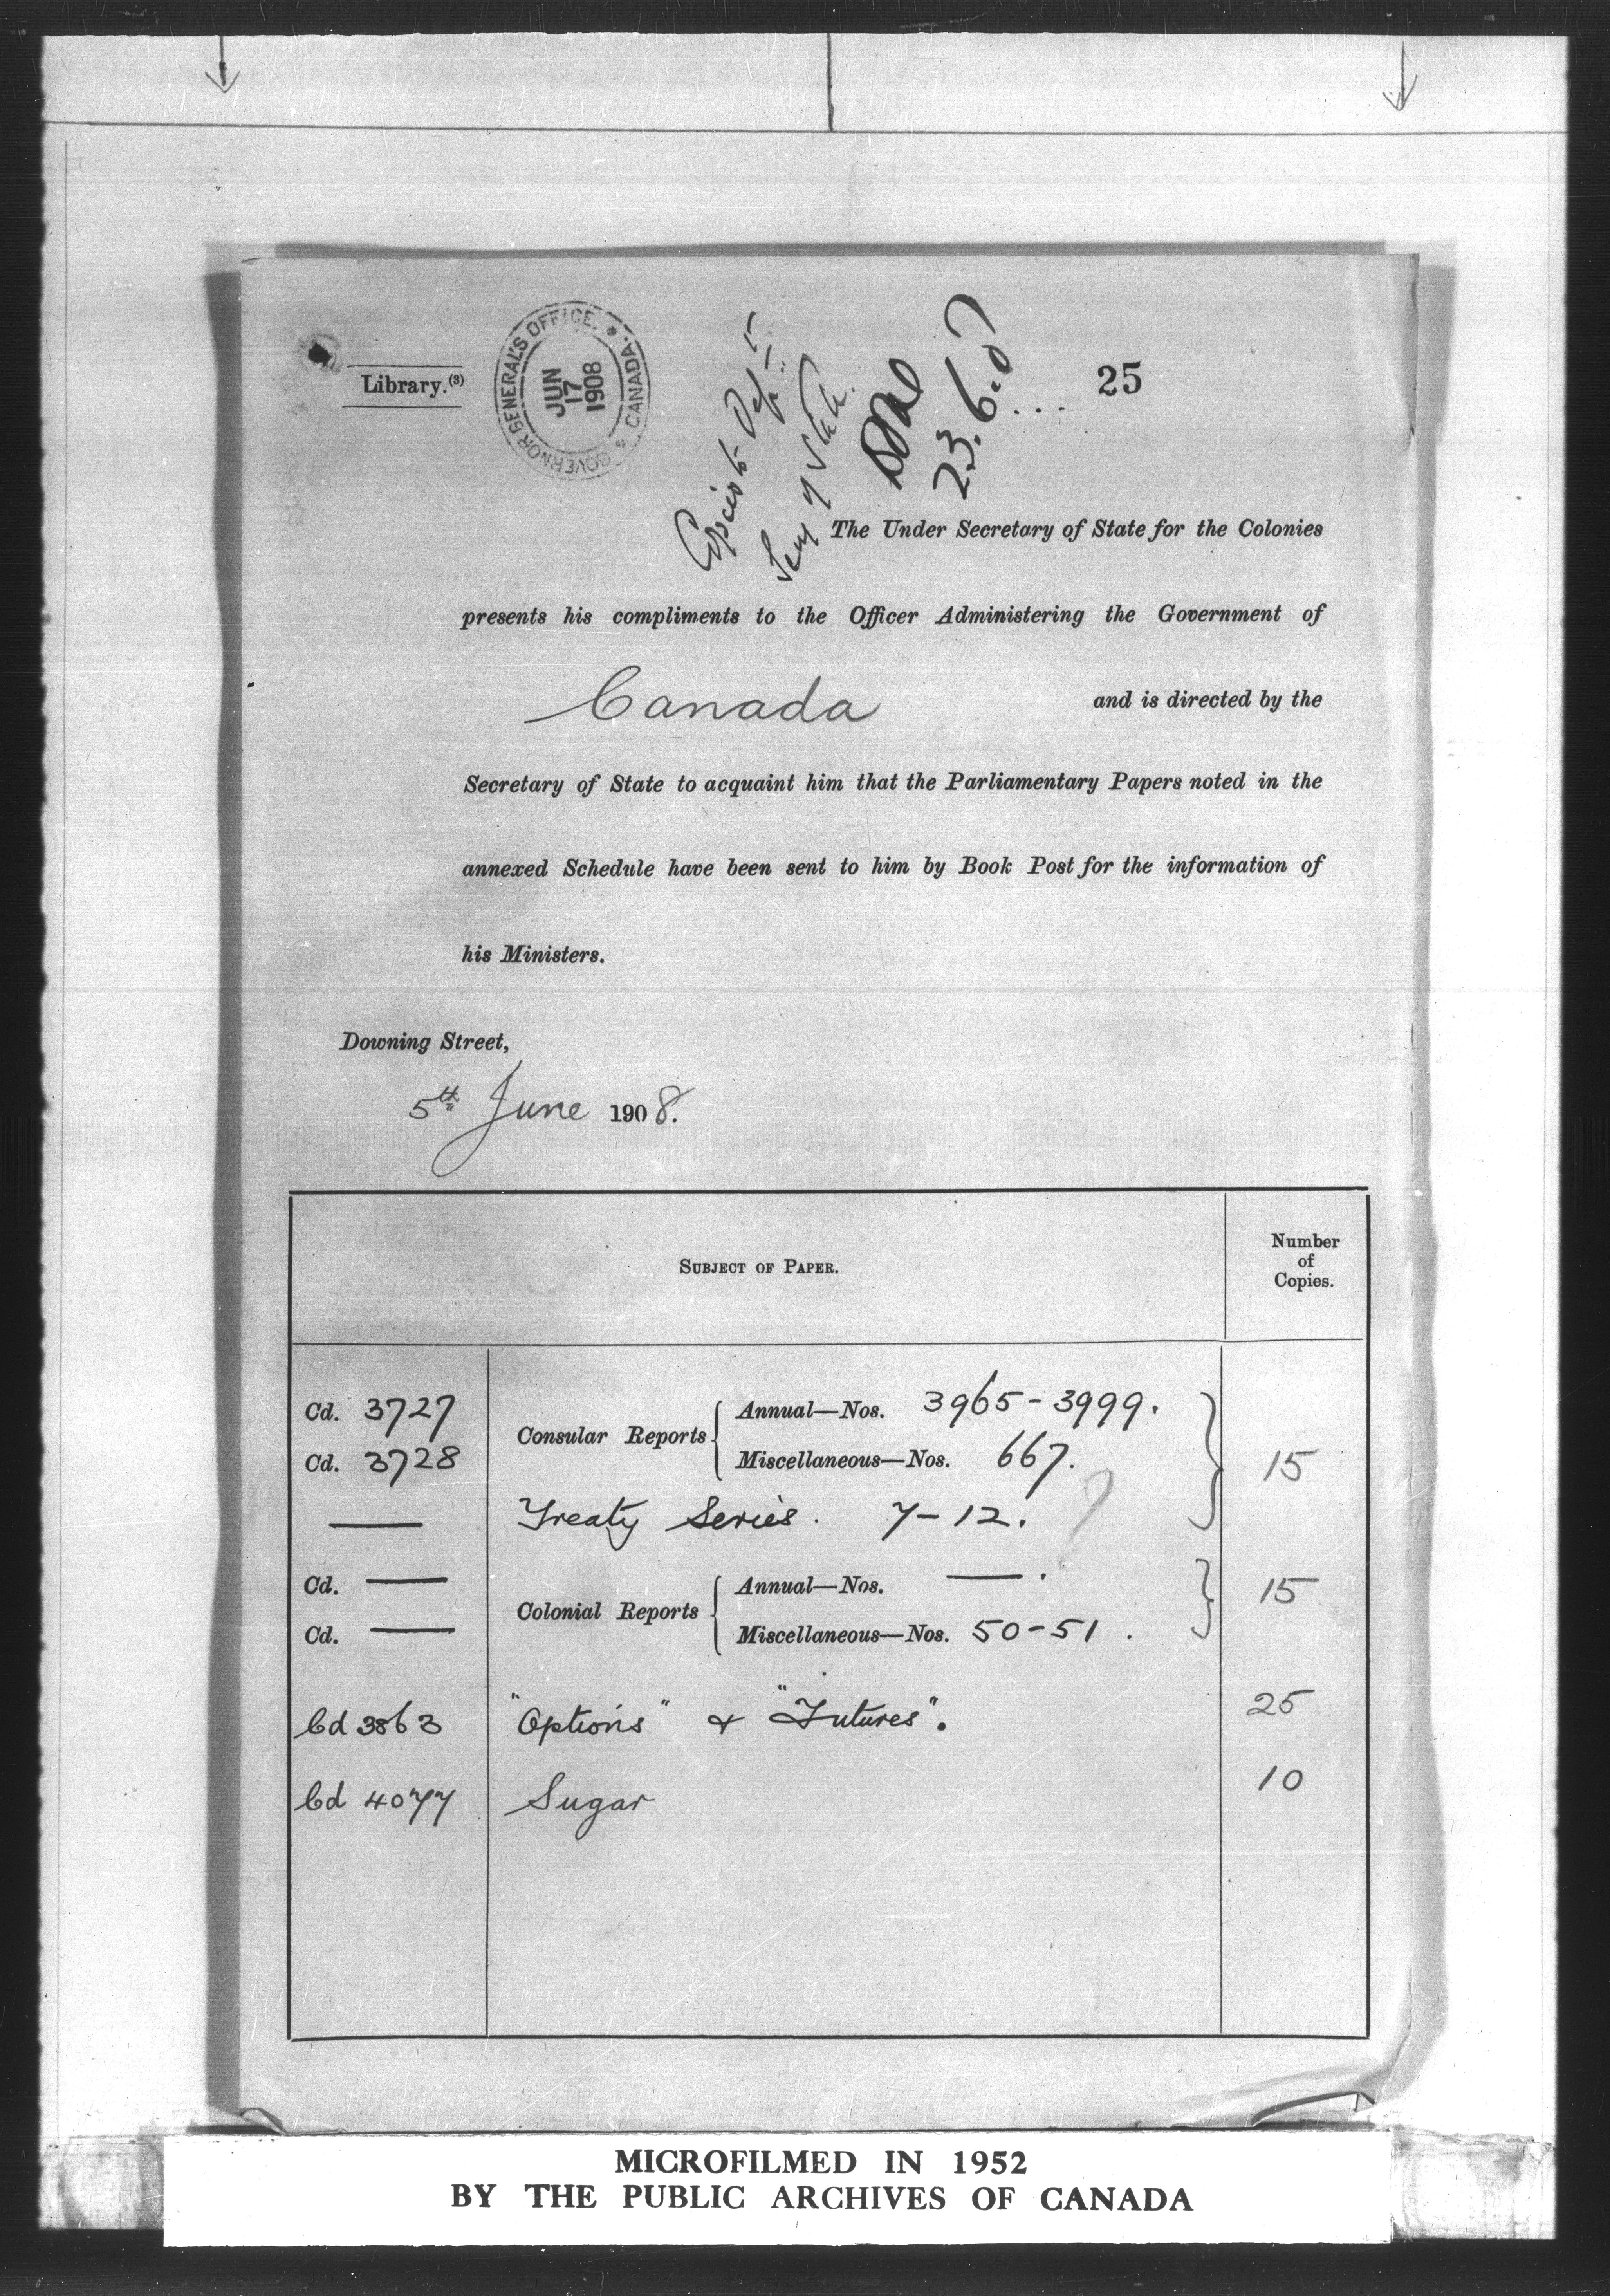 Library.(3)
GOVERNOR GENERAL'S OFFICE. * CANADA. *
JUN
17
1908
Copies to
Secy of State.
23.6.0
25
The Under Secretary of State for the Colonies
presents his compliments to the Officer Administering the Government of
Canada and is directed by the
Secretary of State to acquaint him that the Parliamentary Papers noted in the
annexed Schedule have been sent to him by Book Post for the information of
his Ministers.
Downing Street,
5th June 1908.
SUBJECT OF PAPER.
Number
of
Copies.
Cd. 3727 Consular Reports { Annual—Nos. 3965-3999.
Cd. 3728 Miscellaneous—Nos. 667. } 15
— Treaty Series. 7-12.
Cd. — Colonial Reports { Annual—Nos. — . } 15
Cd. — Miscellaneous—Nos. 50-51.
Cd 3863 "Options" & "Futures". 25
Cd 4077 Sugar 10
MICROFILMED IN 1952
BY THE PUBLIC ARCHIVES OF CANADA